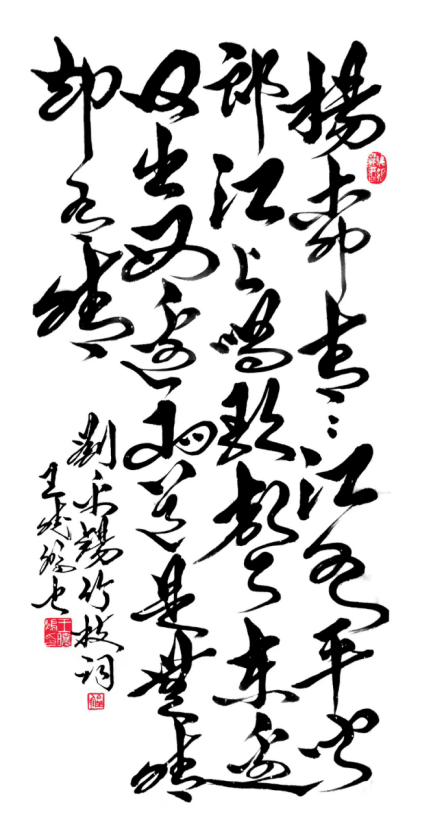 楊柳青〻江水平聞
郎江上唱歌聲東邊
日出西邊雨道是無晴
却有晴
劉禹錫竹枝詞
王